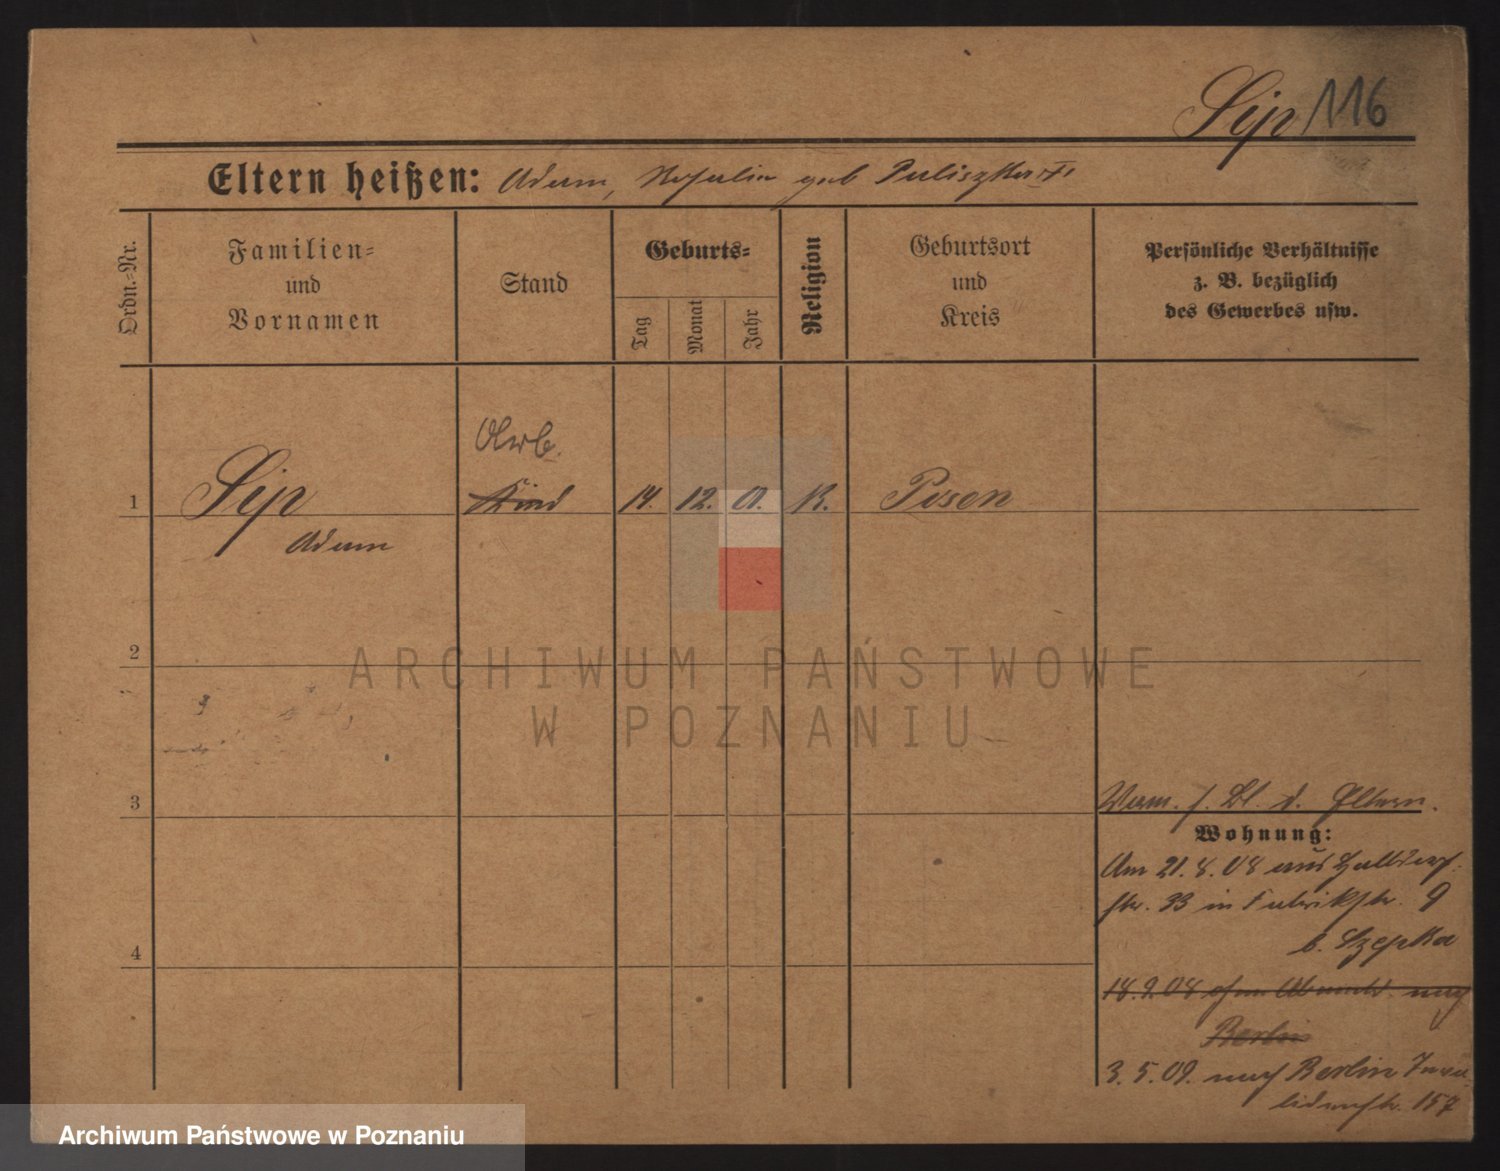 Sip 116
Eltern heißen: Adam, Rosalie geb Puliszka
Ordn.-Nr.
Familien-
und
Vornamen
Stand
Geburts-
Tag
Monat
Jahr
Religion
Geburtsort
und
Kreis
Persönliche Verhältnisse
z. B. bezüglich
des Gewerbes usw.
Arb.
1 Sip Kind 14. 12. 91. K. Posen
Adam
2
ARCHIWUM PAŃSTWOWE
W POZNANIU
3
Verm. s. Bl. d. Eltern.
Wohnung:
Am 21. 8. 08 aus Halldorf-
str. 33 in Fabrikstr. 9
b. Szepka
4
18.9.08 ohne Abmeld. nach
Berlin
3. 5. 09. nach Berlin Inva-
lidenstr. 157
Archiwum Państwowe w Poznaniu